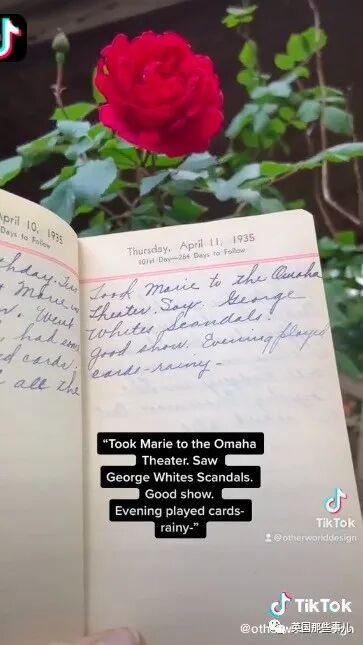 April 10, 1935
Days to Follow
Marie in
Went
had
cards.
all the
Thursday, April 11, 1935
101st Day—264 Days to Follow
Took Marie to the Omaha
Theater. Saw George
Whites Scandals.
good show. Evening played
cards-rainy-
“Took Marie to the Omaha
Theater. Saw
George Whites Scandals.
Good show.
Evening played cards-
rainy-”
TikTok
@otherworlddesign
TikTok
英国那些事儿